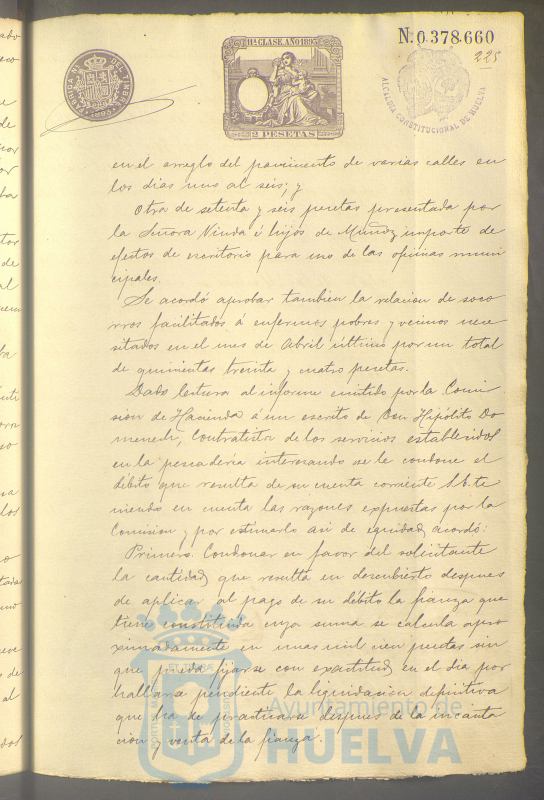 N. 0.378.660
225
11ª CLASE. AÑO 1895
2 PESETAS
ALCALDIA CONSTITUCIONAL DE HUELVA
en el arreglo del pavimento de varias calles en
los dias uno al seis; y
Otra de setenta y seis pesetas presentada por
la Señora Viuda é hijos de Muñoz importe de
efectos de escritorio para uso de las oficinas muni
cipales.
Se acordó aprobar tambien la relacion de soco
rros facilitados á enfermos pobres y vecinos nece
sitados en el mes de Abril último por un total
de quinientas treinta y cuatro pesetas.
Dada lectura al informe emitido por la Comi
sion de Hacienda á un escrito de Don Hipólito Do
menech, Contratista de los servicios establecidos
en la pescadería interesando se le condone el
débito que resulta de su cuenta corriente S.E. te
niendo en cuenta las razones expuestas por la
Comision y por estimarlo asi de equidad, acordó:
Primero. Condonar en favor del solicitante
la cantidad que resulta en descubierto despues
de aplicar al pago de su débito la fianza que
tiene constituida cuya suma se calcula apro
ximadamente en unas mil cien pesetas sin
que pueda fijarse con exactitud en el dia por
hallarse pendiente la liquidacion definitiva
que ha de practicarse despues de la incauta
cion y venta de la fianza.
Ayuntamiento de
HUELVA